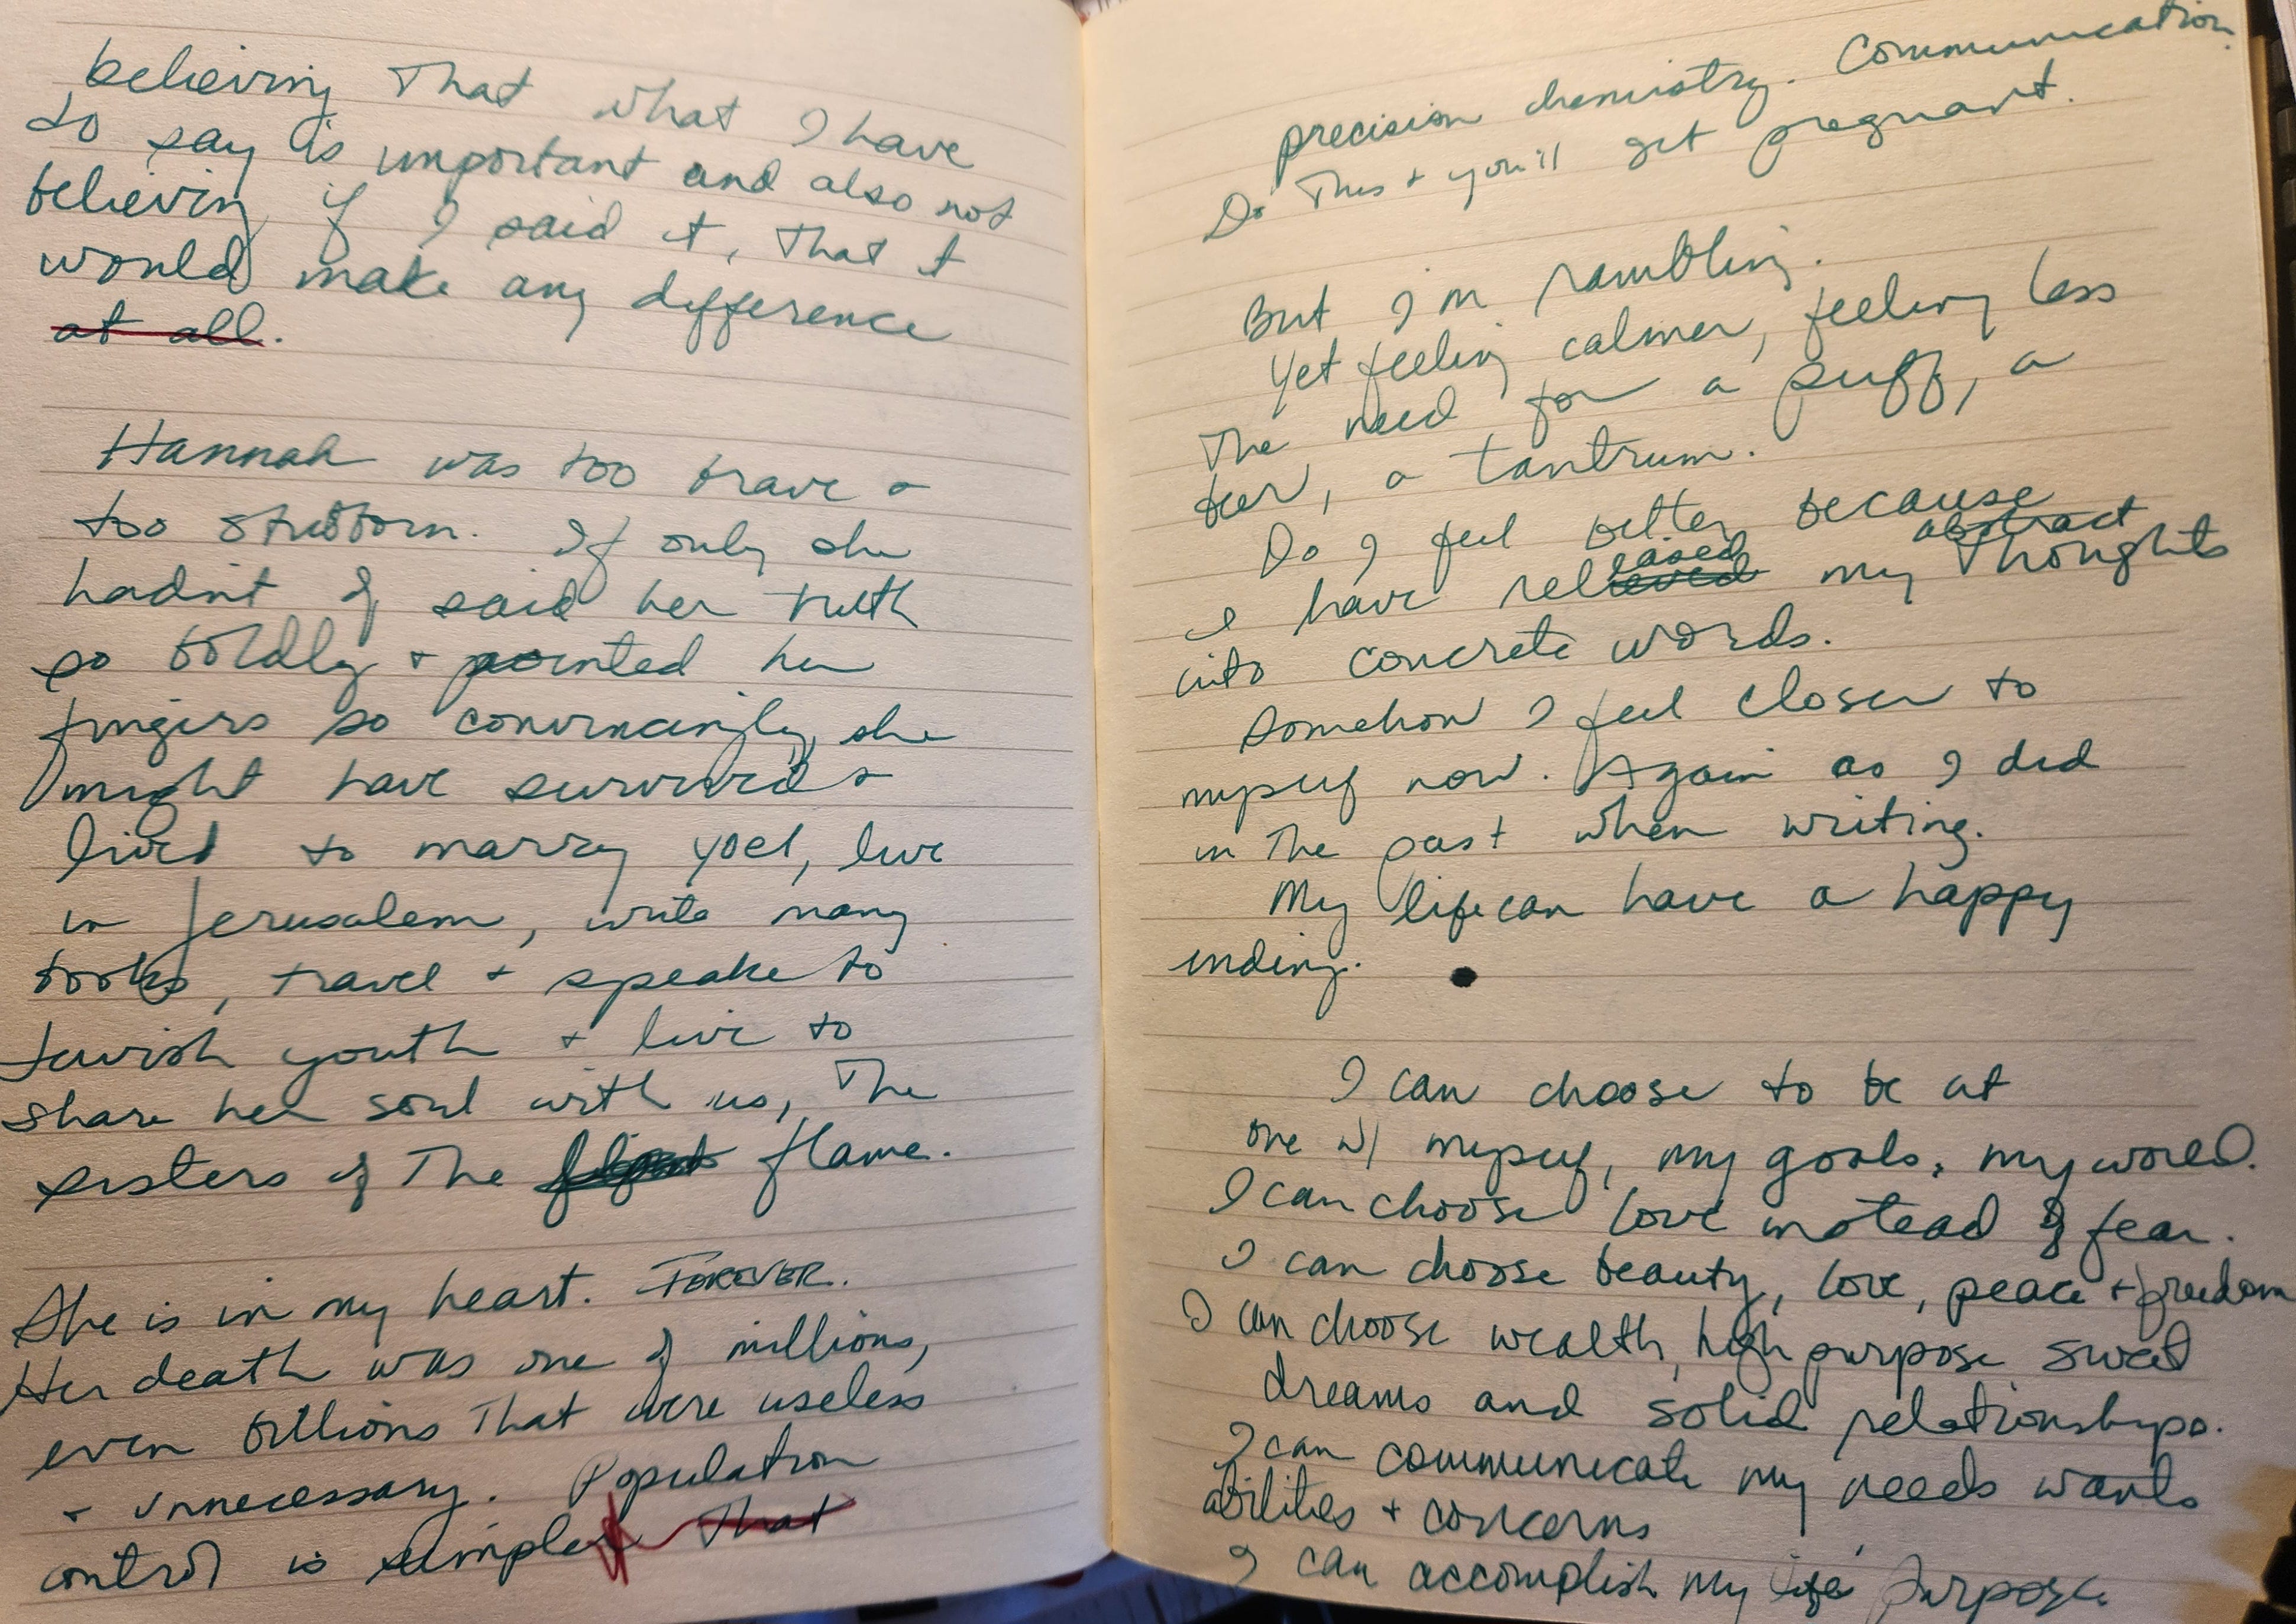 believing That what I have
to say is important and also not
believing if I said it, that it
would make any difference
at all.
Hannah was too brave +
too stubborn. If only she
hadn't of said her truth
so boldly + pointed her
fingers so convincingly, she
might have survived +
lived to marry Yoel, live
in Jerusalem, write many
books, travel + speake to
Jewish youth + live to
share her soul with us, The
sisters of The flame.
She is in my heart. FOREVER.
Her death was one of millions,
even billions That were useless
+ unnecessary. Population
control is simple That
precision chemistry. Communication.
Do This + you'll get pregnant.
But I'm rambling.
Yet feeling calmer, feeling less
The need for a puff, a
beer, a tantrum.
Do I feel better because
I have released my abstract Thoughts
into concrete words.
Somehow I feel closer to
myself now. Again as I did
in The past when writing.
My life can have a happy
ending.
I can choose to be at
one w/ myself, my goals, my world.
I can choose love instead of fear.
I can choose beauty, love, peace + freedom
I can choose wealth, high purpose sweet
dreams and solid relationships.
I can communicate my needs wants
abilities + concerns
I can accomplish my life's purpose